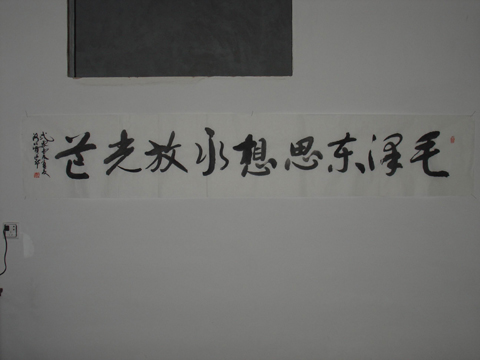 毛泽东思想永放光芒